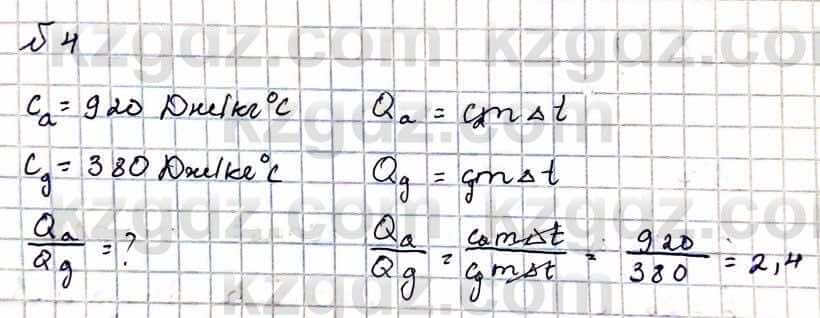 № 4
c_a = 920 Дж/кг°C
Q_a = c_a m Δt
c_g = 380 Дж/кг°C
Q_g = c_g m Δt
Q_a/Q_g = ?
Q_a/Q_g = c_a m Δt / c_g m Δt = 920/380 = 2,4
kzgdz.com